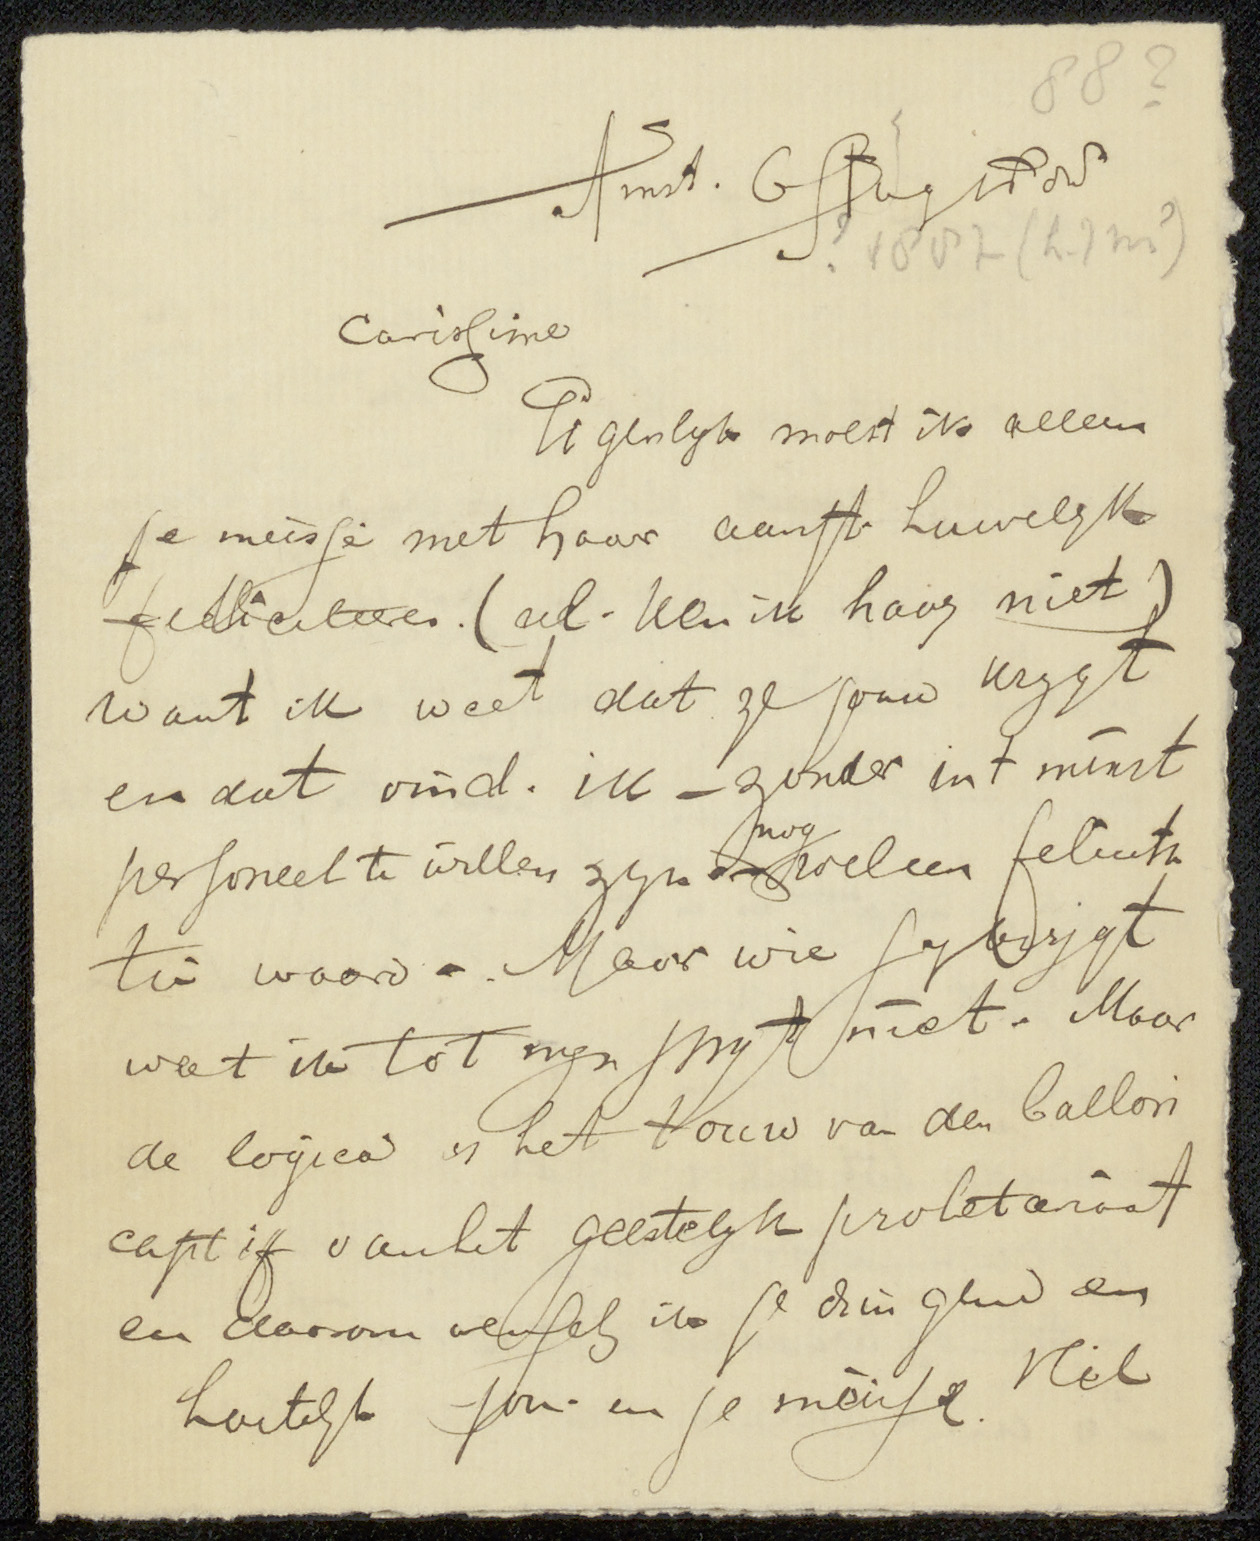 88?
Amst. 6
? 1887 (h.7 m?)
Carissime
Eigenlyk moest ik alleen
je meisje met haar aanst. huwelyk
feliciteeren. (al ken ik haar niet)
want ik weet dat ze jouw krygt
en dat vind. ik – zonder in 't minst
personeel te willen zyn – nog wel een felicita
tie waard –. Maar wie jy krijgt
weet ik tot myn spyt niet. Maar
de logica is het touw van den ballon
captif van het geestelyk proletariaat
en daarom wensch ik je dringend en
hartelyk jou en je meisje. Viel